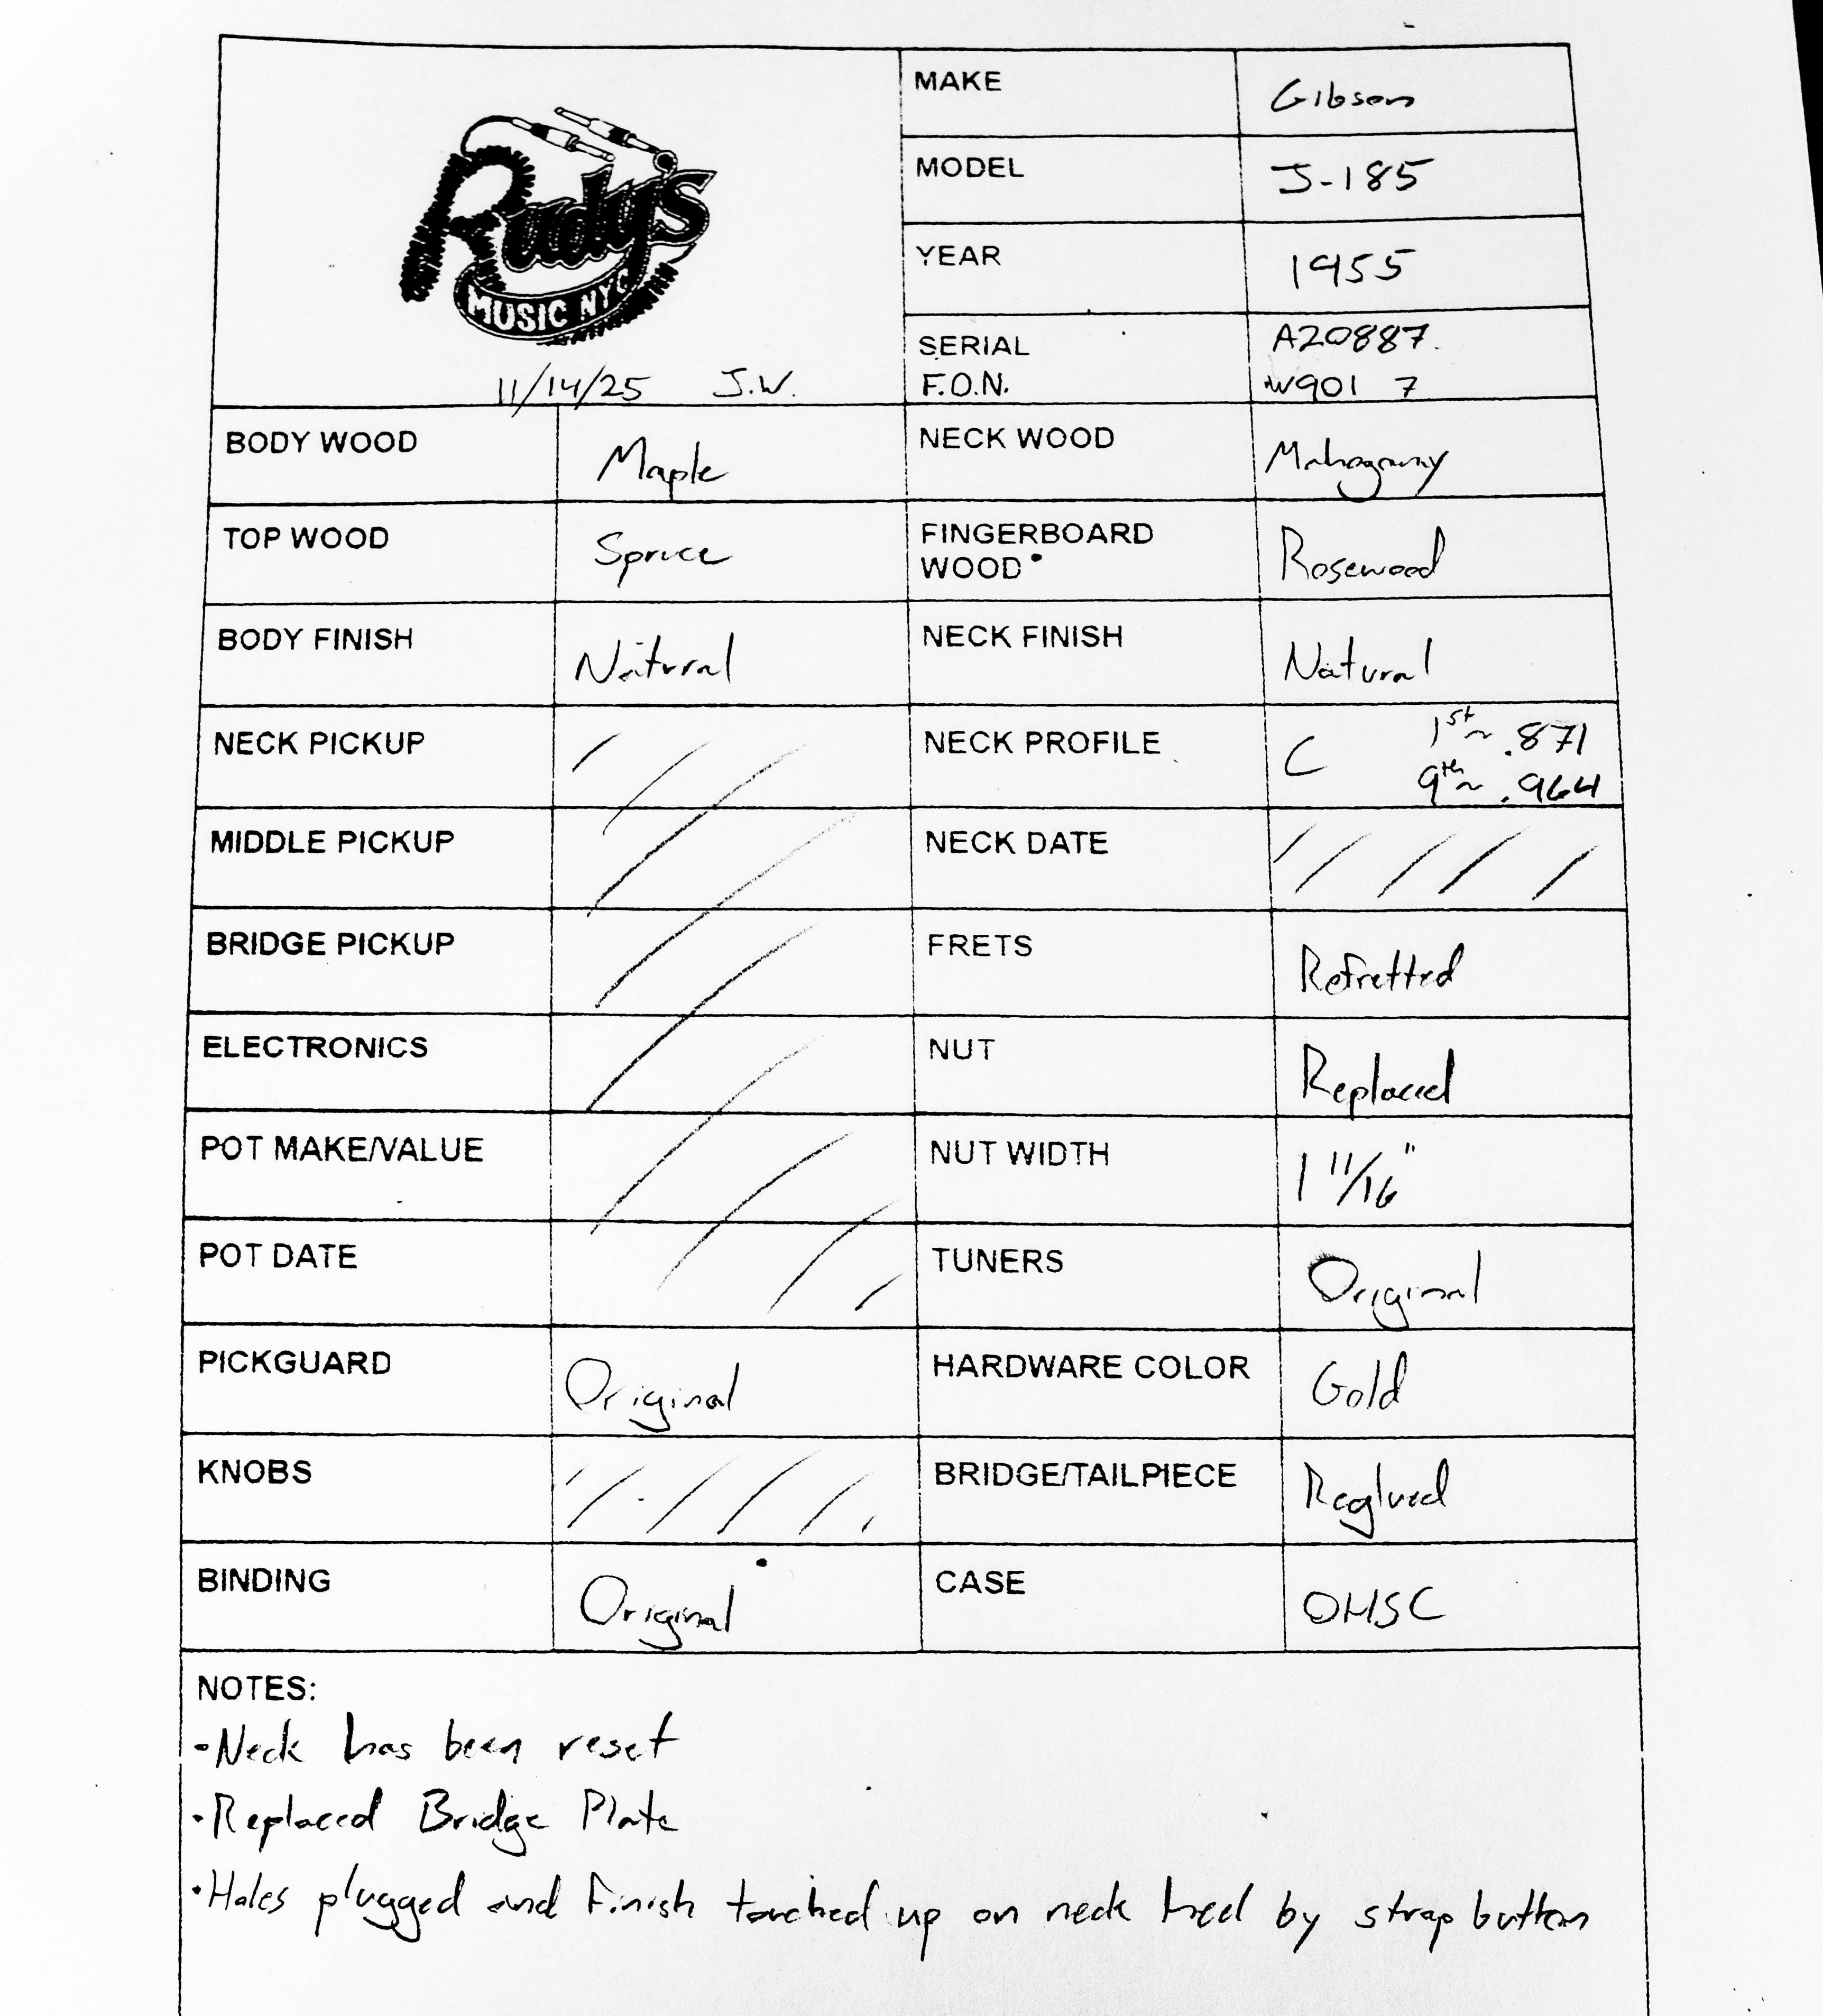 Rudy's
MUSIC NYC
11/14/25 J.W.
MAKE Gibson
MODEL J-185
YEAR 1955
SERIAL A20887.
F.O.N. W901 7
BODY WOOD Maple NECK WOOD Mahogany
TOP WOOD Spruce FINGERBOARD
WOOD Rosewood
BODY FINISH Natural NECK FINISH Natural
NECK PICKUP NECK PROFILE C 1st ~ .871
9th ~ .964
MIDDLE PICKUP NECK DATE
BRIDGE PICKUP FRETS Refretted
ELECTRONICS NUT Replaced
POT MAKE/VALUE NUT WIDTH 1 11/16"
POT DATE TUNERS Original
PICKGUARD Original HARDWARE COLOR Gold
KNOBS BRIDGE/TAILPIECE Reglued
BINDING Original CASE OHSC
NOTES:
·Neck has been reset
·Replaced Bridge Plate
·Holes plugged and finish touched up on neck heel by strap button